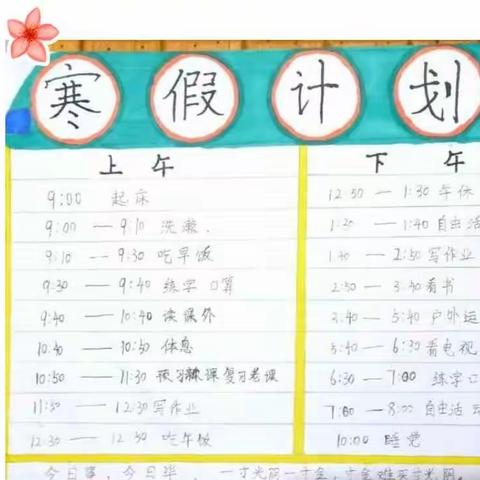 寒假计划
上午
9:00 起床
9:00 — 9:10 洗漱.
9:10 — 9:30 吃早饭
9:30 — 9:40 练字 口算
9:40 — 10:40 读课外
10:40 — 10:50 休息
10:50 — 11:30 预习新课复习老课
11:30 — 12:30 写作业
12:30 — 12:50 吃午饭
下午
12:50 — 1:30 午休
1:20 — 1:40 自由活
1:40 — 2:50 写作业
2:50 — 3:40 看书
3:40 — 5:40 户外运
5:40 — 6:30 看电视
6:30 — 7:00 练字口
7:00 — 8:00 自由活
10:00 睡觉
今日事,今日毕, 一寸光阴一寸金,寸金难买寸光阴。